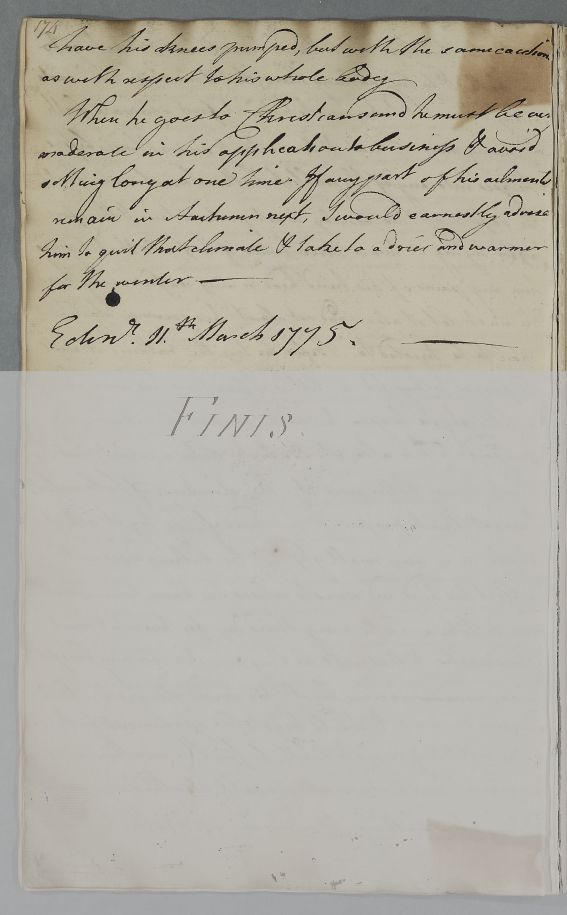 174
have his knees pumped, but with the same caution
as with respect to his whole body
When he goes to Christiansund he must be very
moderate in his application to business & avoid
sitting long at one time. If any part of his ailments
remain in Autumn next, I would earnestly advise
him to quit that climate & take to a drier and warmer
for the winter —
Edinr. 11.th March 1775. —
FINIS.